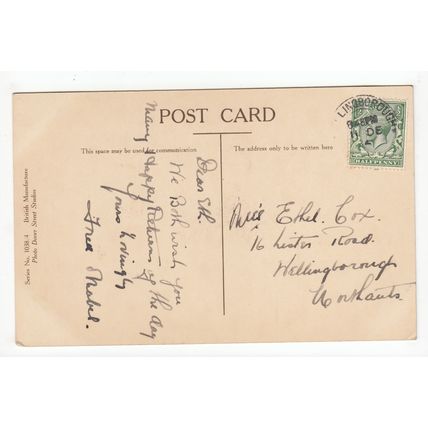 POST CARD
This space may be used for communication
The address only to be written here
Dear Eth.
We Both wish you
Many Happy Returns of the day
yours lovingly
Fred & Mabel.
Miss Ethel Cox.
16 Lister Road.
Wellingborough
Northants
LINGBOROUGH
DE
HALFPENNY
Series No. 1038.4 British Manufacture
Photo Dover Street Studios